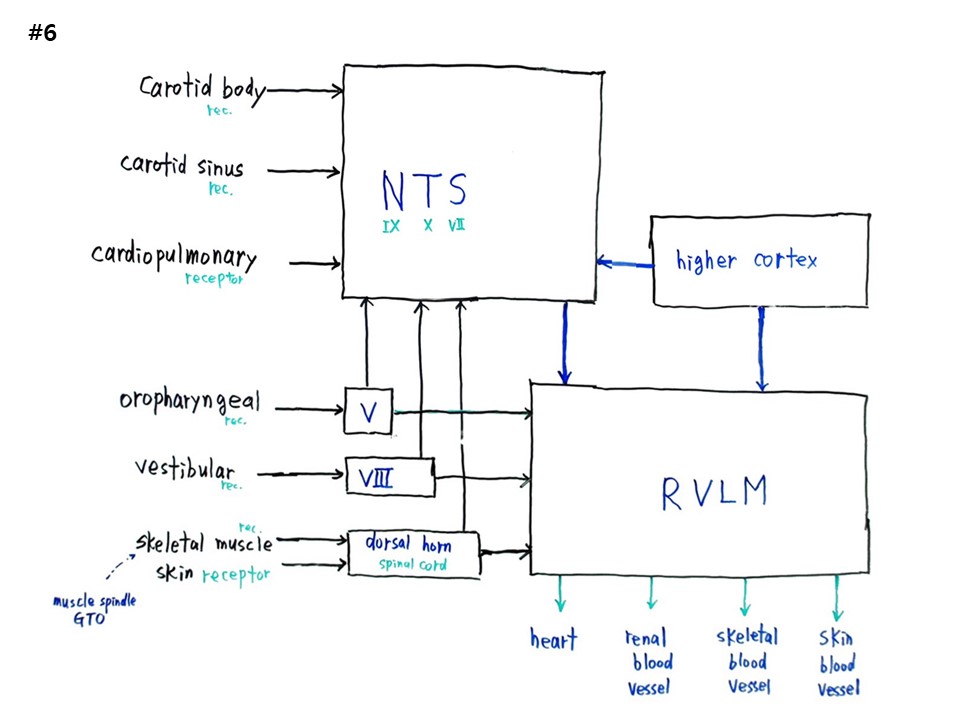 #6
Carotid body
rec.
carotid sinus
rec.
NTS
IX X VII
cardiopulmonary
receptor
higher cortex
oropharyngeal
rec.
V
vestibular
rec.
VIII
RVLM
rec.
skeletal muscle
skin receptor
dorsal horn
spinal cord
muscle spindle
GTO
heart
renal
blood
vessel
skeletal
blood
vessel
skin
blood
vessel